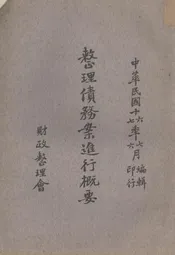 中華民國十六年七月編輯
十七年六月印行
整理債務案進行概要
財政整理會